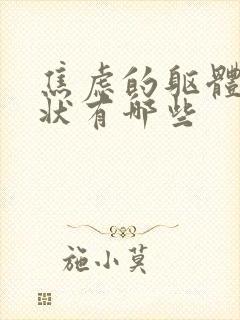 焦虑的躯體
状有哪些
施小莫